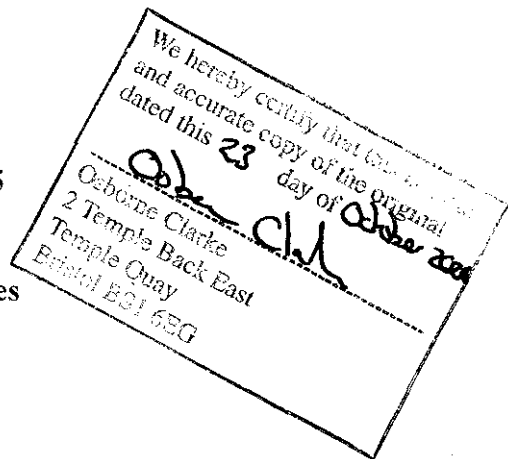 We hereby certify that
and accurate copy of the original
dated this 23 day of October
Osborne Clarke
Osborne Clarke
2 Temple Back East
Temple Quay
Bristol BS1 6EG
es